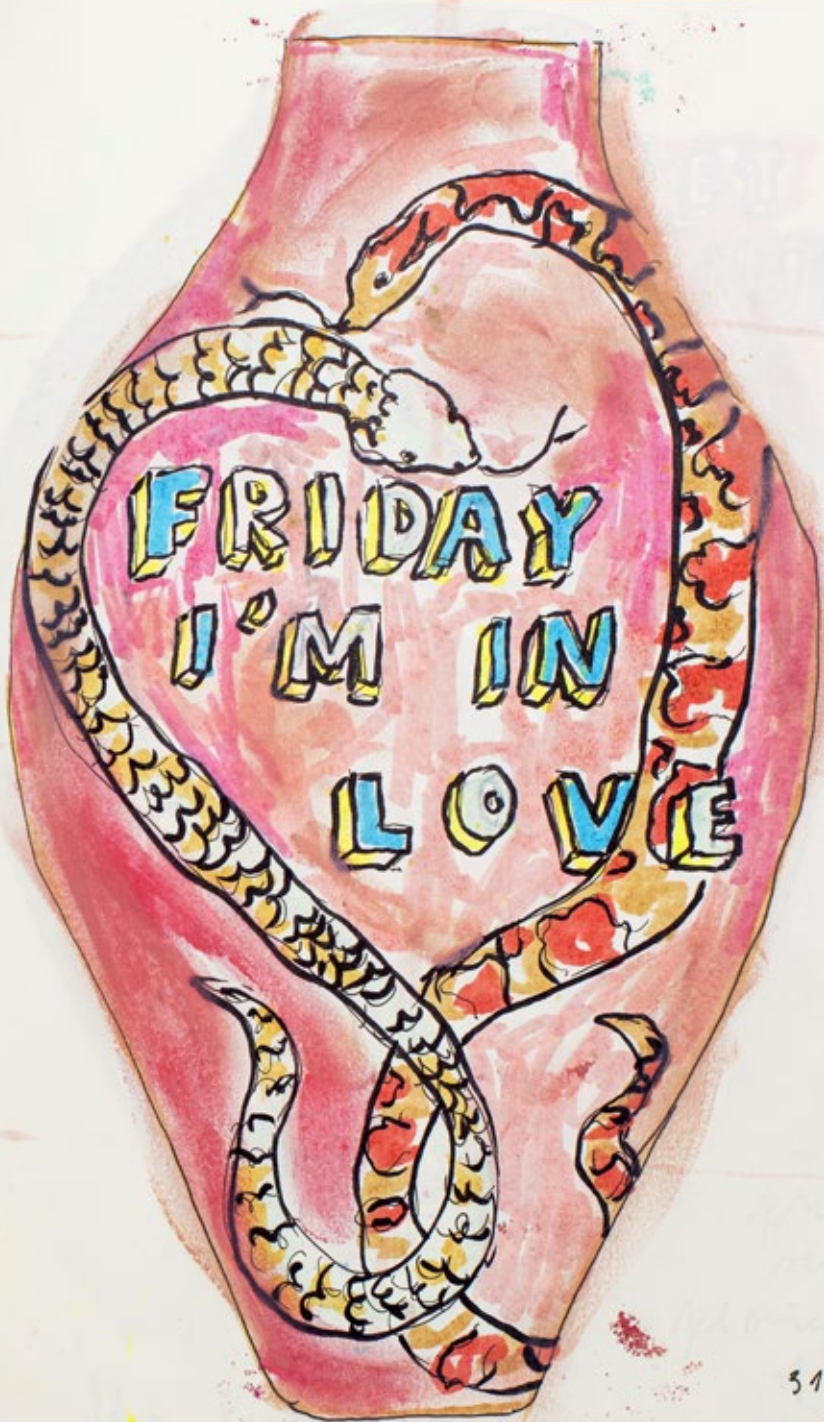 FRIDAY
I'M IN
LOVE
31